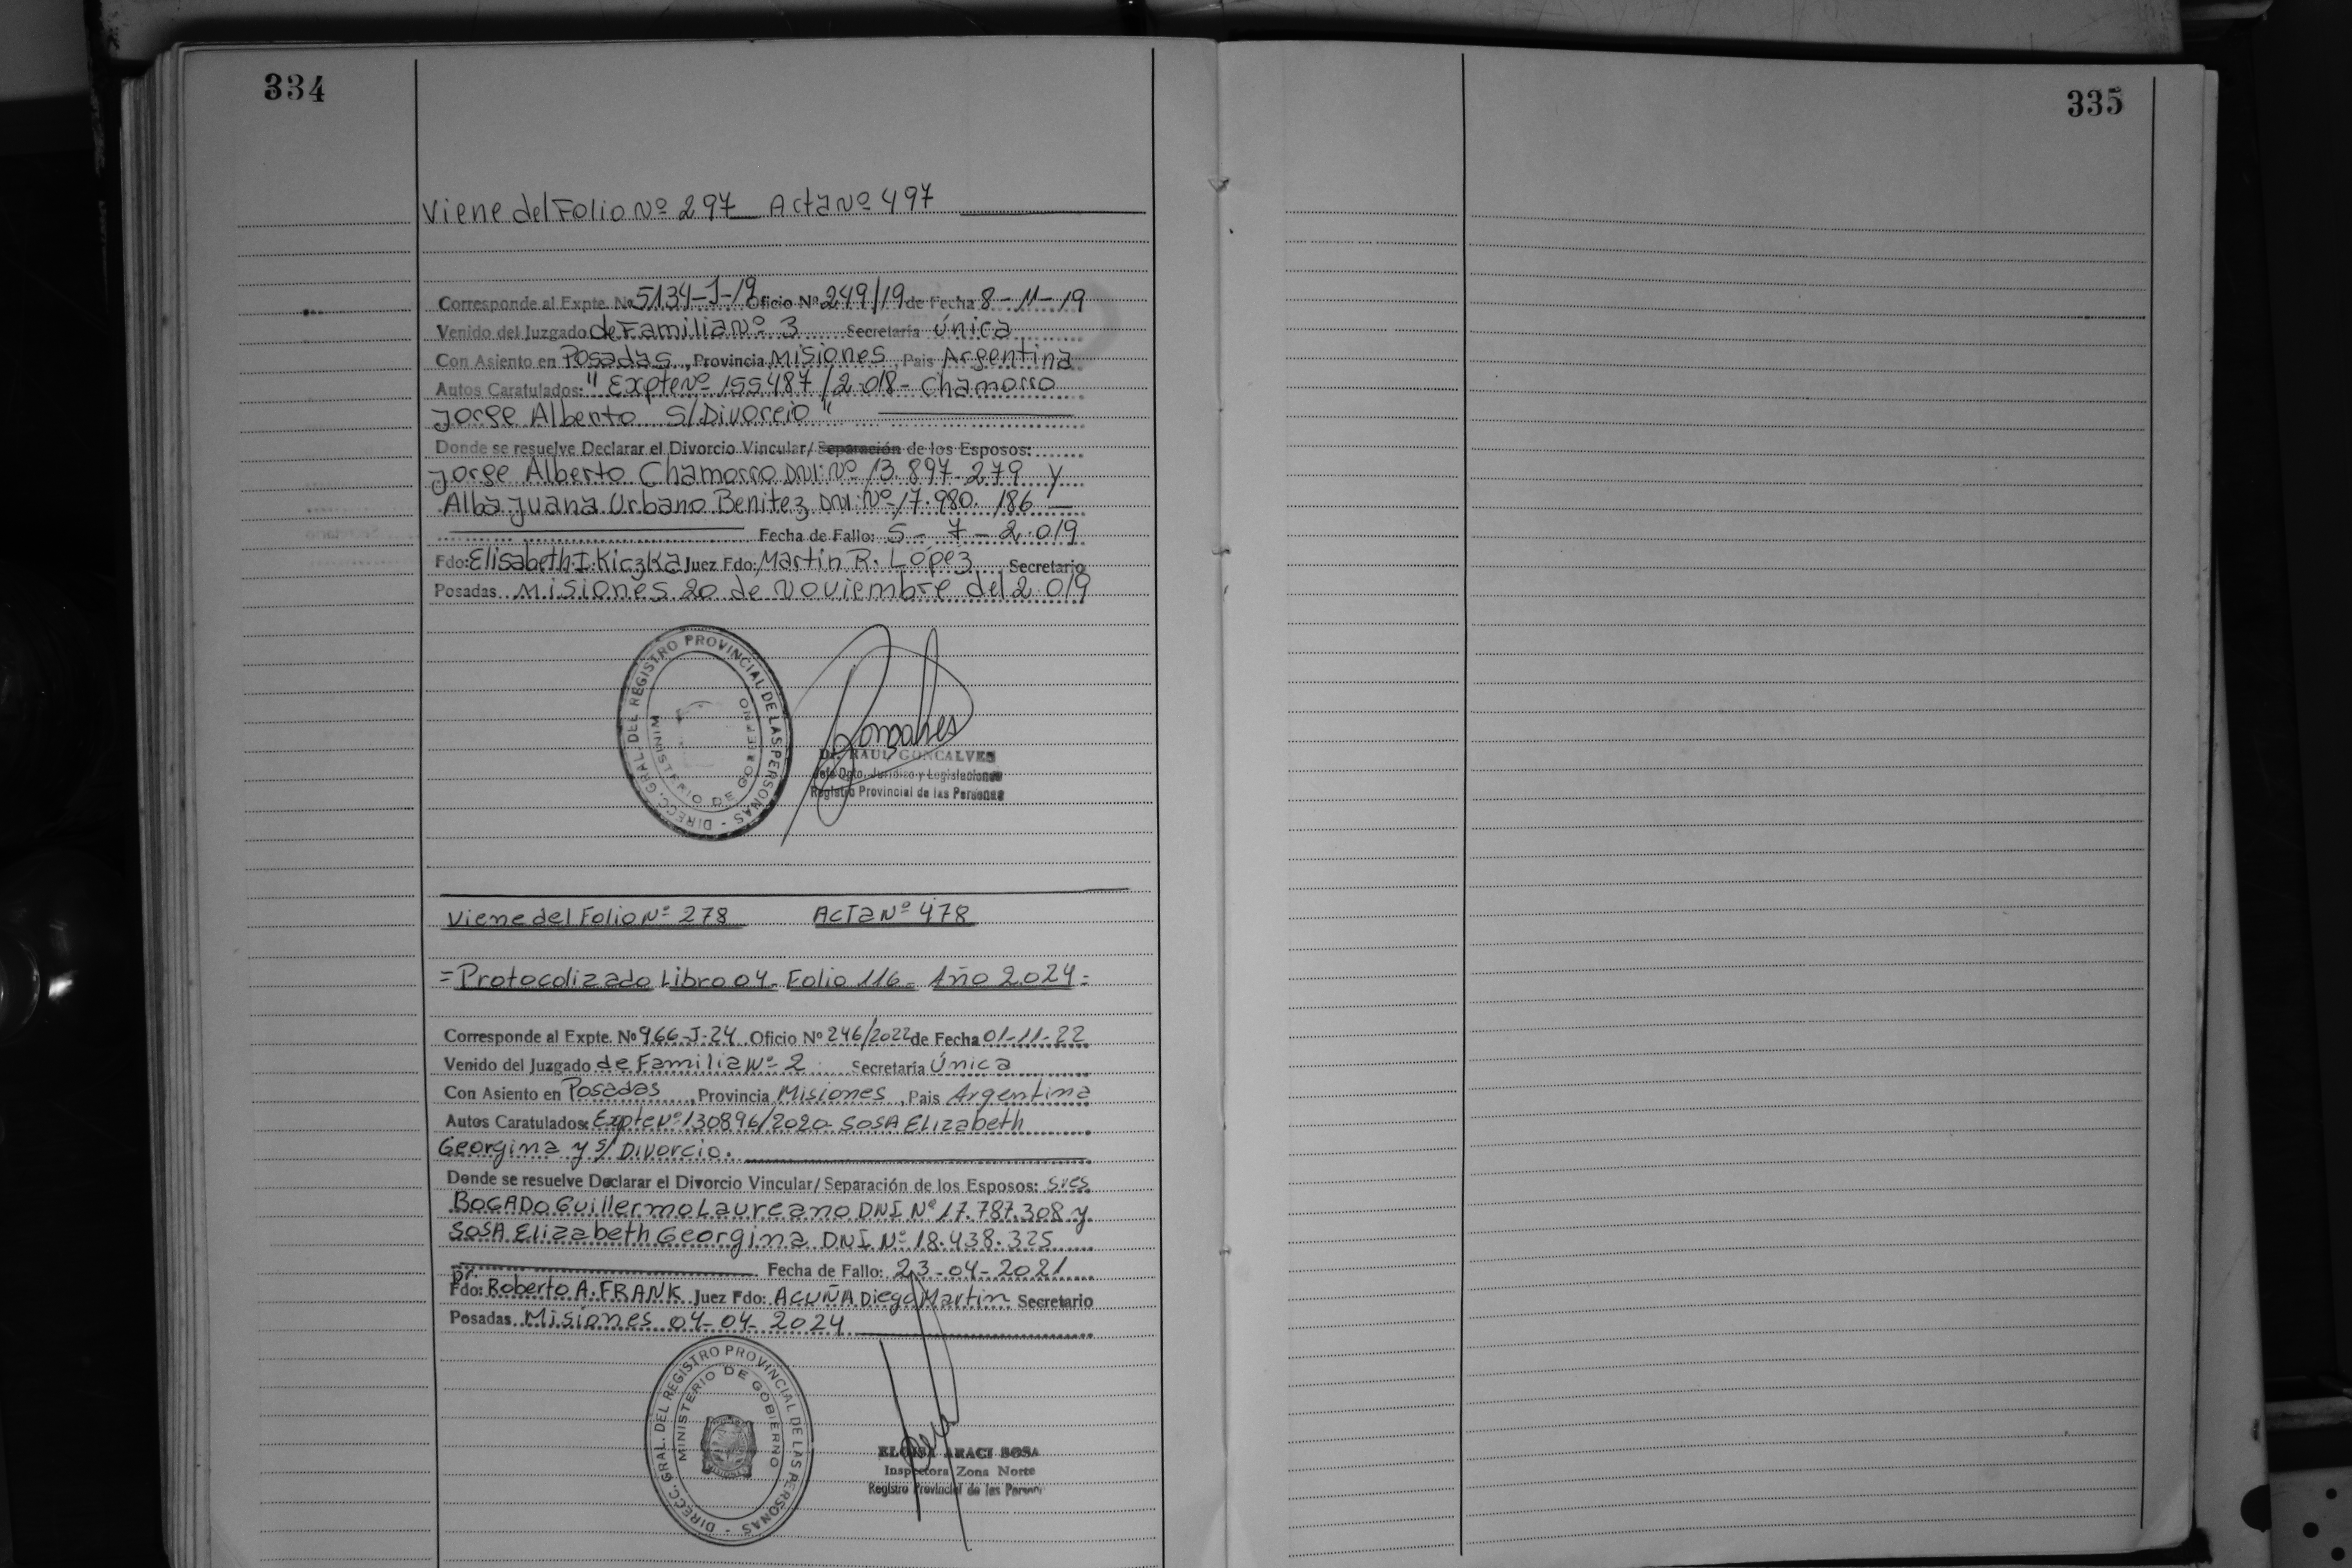 334
Viene del Folio Nº 297 Acta Nº 497
Corresponde al Expte. Nº 5134-J-19 Oficio Nº 249/19 de Fecha 8-11-19
Venido del Juzgado de Familia Nº 3 Secretaría Única
Con Asiento en Posadas, Provincia Misiones, Pais Argentina
Autos Caratulados: "Expte Nº 155487/2.018- Chamorro
Jorge Alberto S/Divorcio"
Donde se resuelve Declarar el Divorcio Vincular/ Separación de los Esposos:
Jorge Alberto Chamorro DNI: Nº 13.897.279 y
Alba Juana Urbano Benitez DNI: Nº 17.980.186
Fecha de Fallo: 5-7-2.019
Fdo: Elisabeth I. Kiczka Juez Fdo: Martin R. López, Secretario
Posadas Misiones 20 de Noviembre del 2.019
DIRECC. GRAL. DEL REGISTRO PROVINCIAL DE LAS PERSONAS -
MINISTERIO DE GOBIERNO
Goncalves
Dr. RAUL GONCALVES
Jefe Dpto. Jurídico y Legislaciones
Registro Provincial de las Personas
Viene del Folio Nº 278 Acta Nº 478
=Protocolizado Libro 04- Folio 116- Año 2.024=
Corresponde al Expte. Nº 966-J-24 Oficio Nº 246/2022 de Fecha 01-11-22
Venido del Juzgado de Familia Nº 2 Secretaría Única
Con Asiento en Posadas, Provincia Misiones, Pais Argentina
Autos Caratulados: Expte Nº 130896/2020- SOSA Elizabeth
Georgina y s/ Divorcio.
Donde se resuelve Declarar el Divorcio Vincular/ Separación de los Esposos: sres
BOGADO Guillermo Laureano DNI Nº 17.787.308 y
SOSA Elizabeth Georgina DNI Nº 18.438.325
Fecha de Fallo: 23-04-2021
Dr.
Fdo: Roberto A. FRANK Juez Fdo: ACUÑA Diego Martin Secretario
Posadas Misiones 04-04-2024
DIRECC. GRAL. DEL REGISTRO PROVINCIAL DE LAS PERSONAS -
MINISTERIO DE GOBIERNO
ELOISA ARACI SOSA
Inspectora Zona Norte
Registro Provincial de las Person
335